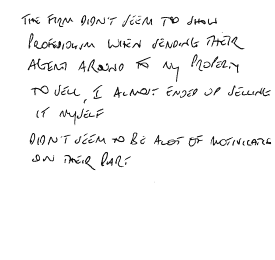 THE FIRM DIDN'T SEEM TO SHOW
PROFESSIONISM WHEN SENDING THEIR
AGENT AROUND TO MY PROPERTY
TO SELL, I ALMOST ENDED UP SELLING
IT MYSELF
DIDN'T SEEM TO BE ALOT OF
ON THEIR PART